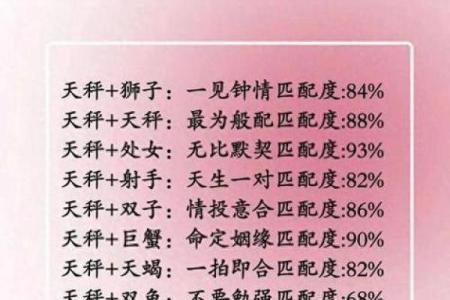 天秤+狮子：一见钟情匹配度:84%
天秤+天秤：最为般配匹配度:88%
天秤+处女：无比默契匹配度:93%
天秤+射手：天生一对匹配度:82%
天秤+双子：情投意合匹配度:86%
天秤+巨蟹：命定姻缘匹配度:90%
天秤+天蝎：一拍即合匹配度:82%
天秤+双鱼：不要勉强匹配度:68%